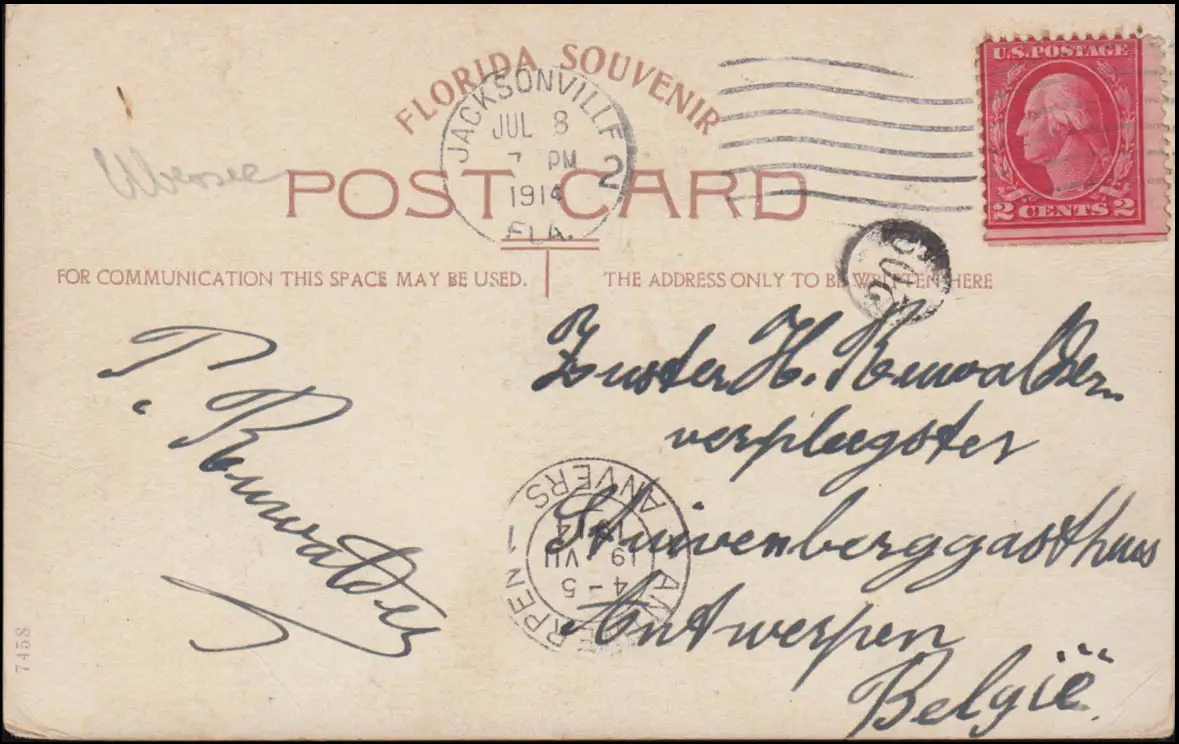 FLORIDA SOUVENIR
POST CARD
JACKSONVILLE
JUL 8
7 PM
1914
FLA.
2
U.S. POSTAGE
2 CENTS 2
Ubersee
FOR COMMUNICATION THIS SPACE MAY BE USED.
THE ADDRESS ONLY TO BE WRITTEN HERE
209
T.
Zuster H.
verpleegster
Stuivenberggasthuis
Antwerpen
België.
ANTWERPEN 1
ANVERS
4-5
19 VII
1914
7458